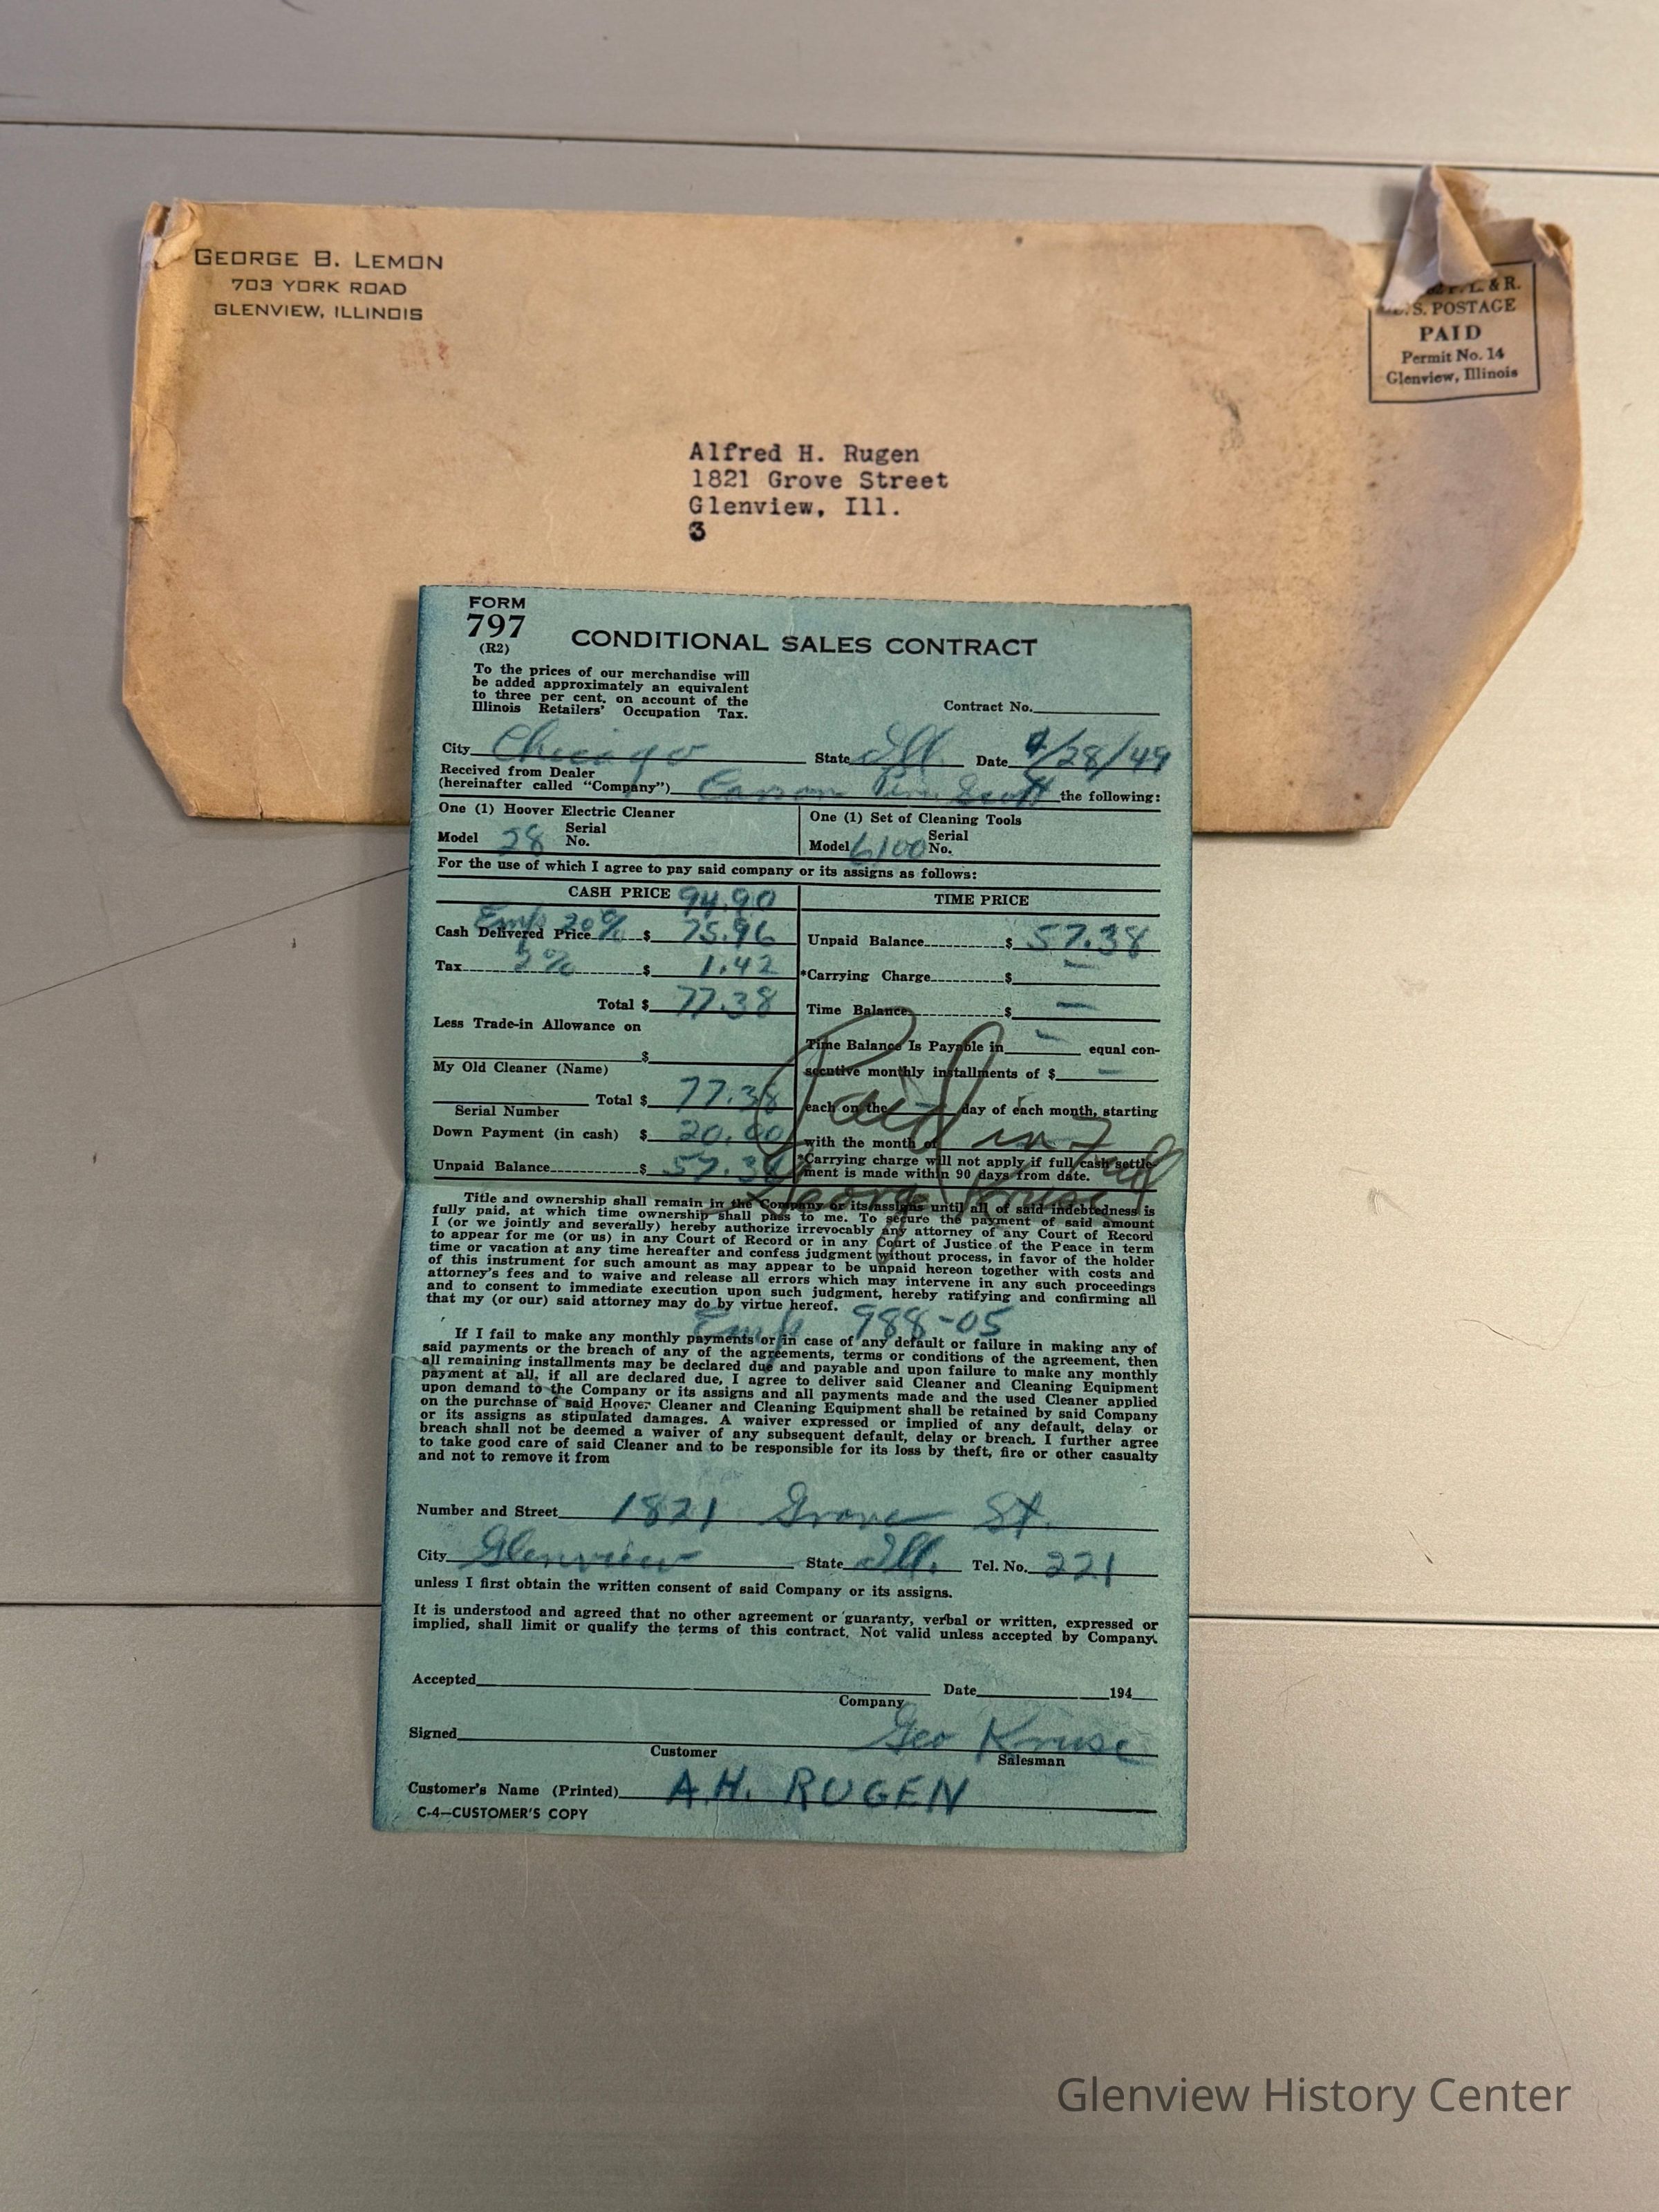 GEORGE B. LEMON
703 YORK ROAD
GLENVIEW, ILLINOIS
P. L. & R.
U.S. POSTAGE
PAID
Permit No. 14
Glenview, Illinois
Alfred H. Rugen
1821 Grove Street
Glenview, Ill.
3
FORM
797
(R2)
CONDITIONAL SALES CONTRACT
To the prices of our merchandise will
be added approximately an equivalent
to three per cent, on account of the
Illinois Retailers' Occupation Tax.
Contract No.
City Chicago State Ill. Date /28/49
Received from Dealer
(hereinafter called "Company") Carson Pirie Scott the following:
One (1) Hoover Electric Cleaner
Model 28 Serial No.
One (1) Set of Cleaning Tools
Model 6100 Serial No.
For the use of which I agree to pay said company or its assigns as follows:
CASH PRICE 94.90
Emp 20%
Cash Delivered Price $ 75.96
Tax 2% $ 1.42
Total $ 77.38
Less Trade-in Allowance on
$
My Old Cleaner (Name)
Total $ 77.38
Serial Number
Down Payment (in cash) $ 20.00
Unpaid Balance $ 57.38
TIME PRICE
Unpaid Balance $ 57.38
*Carrying Charge $ —
Time Balance $ —
Time Balance Is Payable in — equal con-
secutive monthly installments of $ —
each on the — day of each month, starting
with the month of
*Carrying charge will not apply if full cash settle-
ment is made within 90 days from date.
Paid in Full
George Kruse
Title and ownership shall remain in the Company or its assigns until all of said indebtedness is
fully paid, at which time ownership shall pass to me. To secure the payment of said amount
I (or we jointly and severally) hereby authorize irrevocably any attorney of any Court of Record
to appear for me (or us) in any Court of Record or in any Court of Justice of the Peace in term
time or vacation at any time hereafter and confess judgment without process, in favor of the holder
of this instrument for such amount as may appear to be unpaid hereon together with costs and
attorney's fees and to waive and release all errors which may intervene in any such proceedings
and to consent to immediate execution upon such judgment, hereby ratifying and confirming all
that my (or our) said attorney may do by virtue hereof.
Emp 988-05
If I fail to make any monthly payments or in case of any default or failure in making any of
said payments or the breach of any of the agreements, terms or conditions of the agreement, then
all remaining installments may be declared due and payable and upon failure to make any monthly
payment at all, if all are declared due, I agree to deliver said Cleaner and Cleaning Equipment
upon demand to the Company or its assigns and all payments made and the used Cleaner applied
on the purchase of said Hoover Cleaner and Cleaning Equipment shall be retained by said Company
or its assigns as stipulated damages. A waiver expressed or implied of any default, delay or
breach shall not be deemed a waiver of any subsequent default, delay or breach. I further agree
to take good care of said Cleaner and to be responsible for its loss by theft, fire or other casualty
and not to remove it from
Number and Street 1821 Grove St.
City Glenview State Ill. Tel. No. 221
unless I first obtain the written consent of said Company or its assigns.
It is understood and agreed that no other agreement or guaranty, verbal or written, expressed or
implied, shall limit or qualify the terms of this contract. Not valid unless accepted by Company.
Accepted Date 194
Company
Signed Geo Kruse
Customer Salesman
Customer's Name (Printed) A.H. RUGEN
C-4—CUSTOMER'S COPY
Glenview History Center